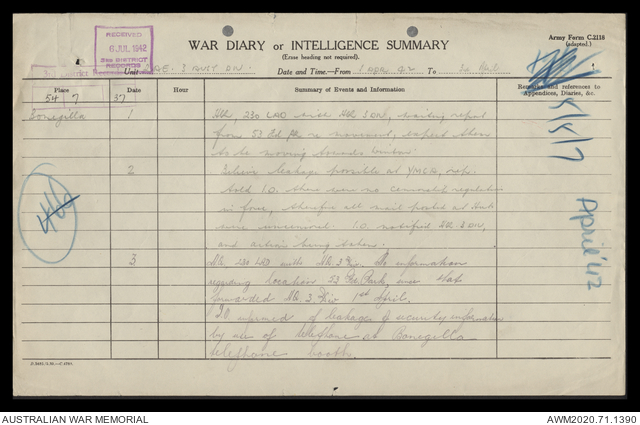 Army Form C.2118
(adapted.)
RECEIVED
6 JUL 1942
3RD DISTRICT
RECORDS
WAR DIARY or INTELLIGENCE SUMMARY
(Erase heading not required).
3rd District Records
Unit RAE. 3 AUST DIV.
Date and Time—From 1 APR 42 To 30 April
Place
Date
Hour
Summary of Events and Information
Remarks and references to
Appendices, Diaries, &c.
54 7 37
5/5/7
April '42
466
Bonegilla 1 HQ, 230 LAD with HQ 3 DIV, waiting report
from 53 Fd Pk re movement, expect them
to be moving towards
2 Believe leakage possible at YMCA, rep.
told I.O. there were no censorship regulations
in force, therefore all mail posted at Hut
were uncensored. I.O. notified HQ 3 DIV,
and action being taken.
3 HQ. 230 LAD with HQ. 3 Div. No information
regarding location 53 Pk,
forwarded HQ 3 Div 1st April.
I.O informed of leakage of security information
by use of telephone at Bonegilla
telephone booth.
AUSTRALIAN WAR MEMORIAL
AWM2020.71.1390